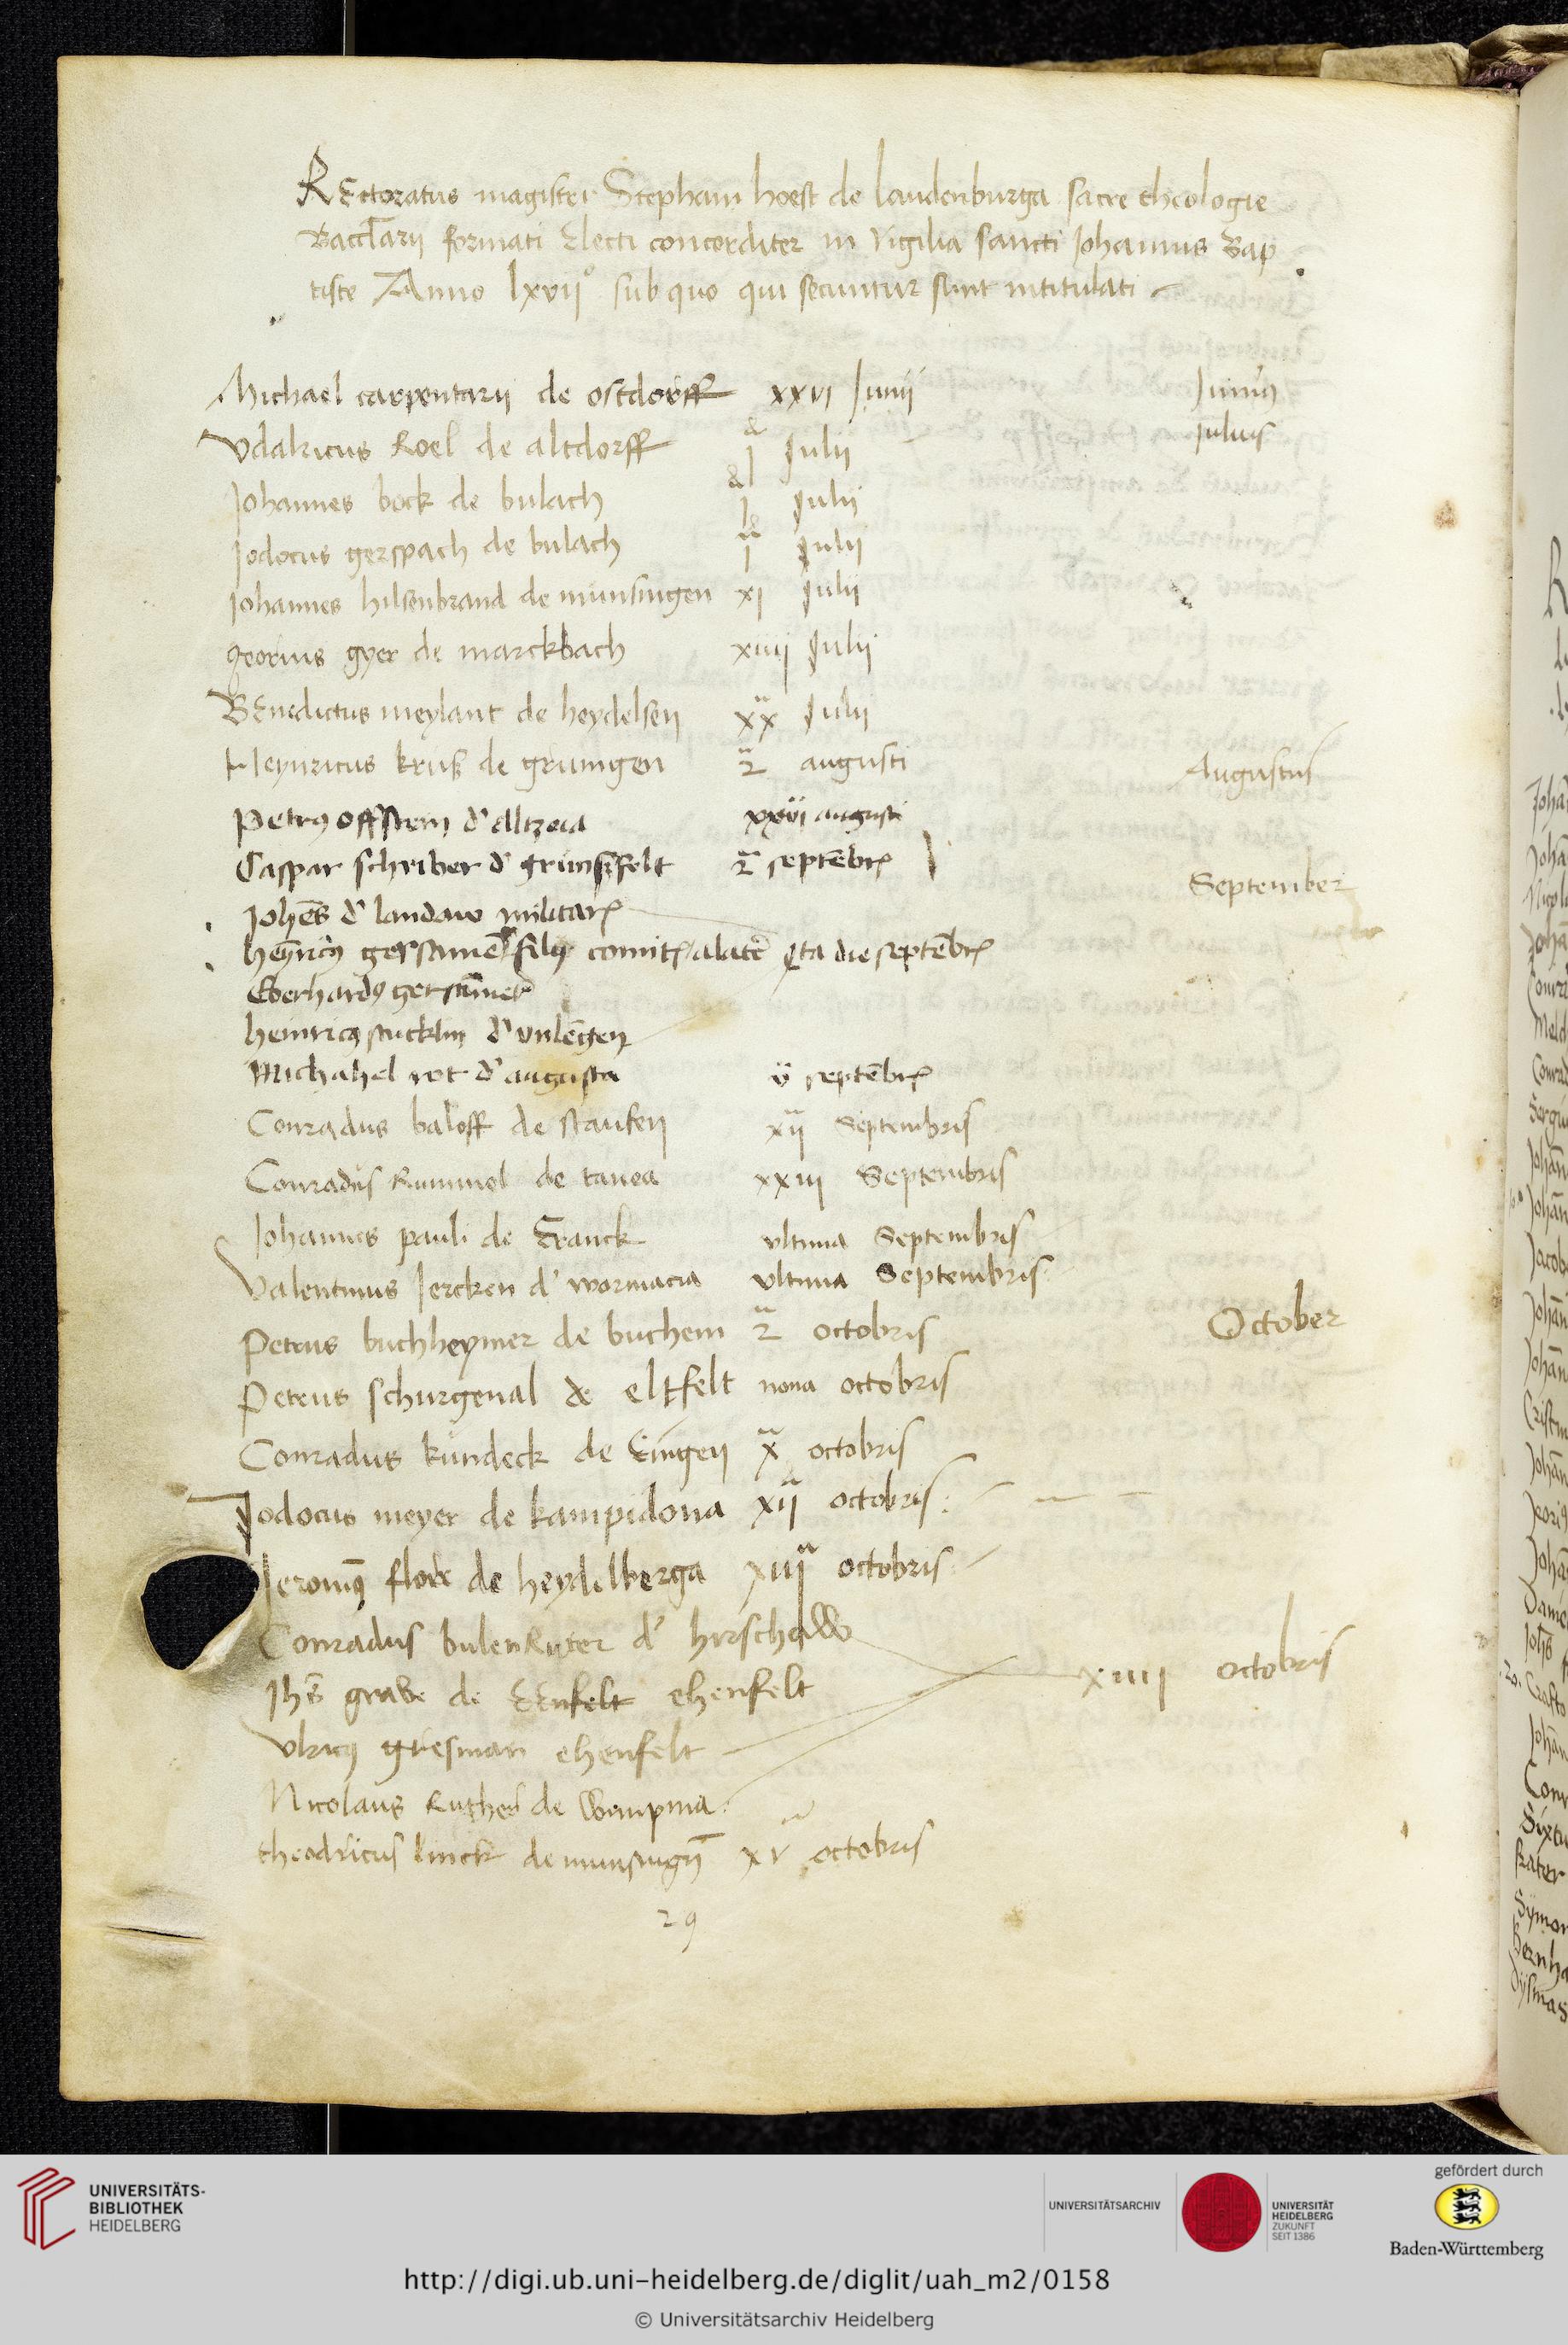 REctoratus magistri Stephani hoest de laudenburga sacre theologie
Bacclarij formati Electi concorditer in vigilia sancti Johannis Bap
tiste Anno lxvijº sub quo qui secuntur sunt intitulati
Michael carpentarij de ostdorff xxvi Junij Junius
Vdalricus Roel de altdorff i Julij Julius
Johannes bock de bulach i Julij
Jodocus gerspach de bulach i Julij
Johannes hilsenbrand de munsingen xi Julij
georius gyer de marckbach xiiij Julij
BEnedictus meylant de heydelsen xx Julij
Heynricus kruß de gruningen 2 augusti Augustus
Petrus offstein d' Altzeia xxvi augusti
Caspar schriber d' grunßfelt 2 septembr
September
Johes d' landaw militar
heynricus gerstameir filius comitis alatei qta die septembr
Eberhardus gerstamer
heinricus stucklin d' vnlengen
Michahel rot d' augusta v septembr
Conradus baloff de staufen xij Septembris
Conradus Rummel de tanea xxiii Septembris
Johannes pauli de Cranck vltima Septembris
Valentinus Jercken d' wormacia vltima Septembris
Petrus buchheymer de buchein 2 octobris October
Petrus schurgenal de eltfelt nona octobris
Conradus kundeck de Eingen x octobris
Jodocus meyer de kampidona xij octobris
Jeronimus flore de heydelberga xiij octobris
Conradus bulenRuter d' hirschaw
xiiii octobris
Jhes grabe de EEnfelt ehenfelt
vlricus griesman ehenfelt
Nicolaus Ruther de Wimpina
theodricus linck de munsingen xv octobris
29
UNIVERSITÄTS-
BIBLIOTHEK
HEIDELBERG
UNIVERSITÄTSARCHIV
UNIVERSITÄT
HEIDELBERG
ZUKUNFT
SEIT 1386
gefördert durch
Baden-Württemberg
http://digi.ub.uni-heidelberg.de/diglit/uah_m2/0158
© Universitätsarchiv Heidelberg